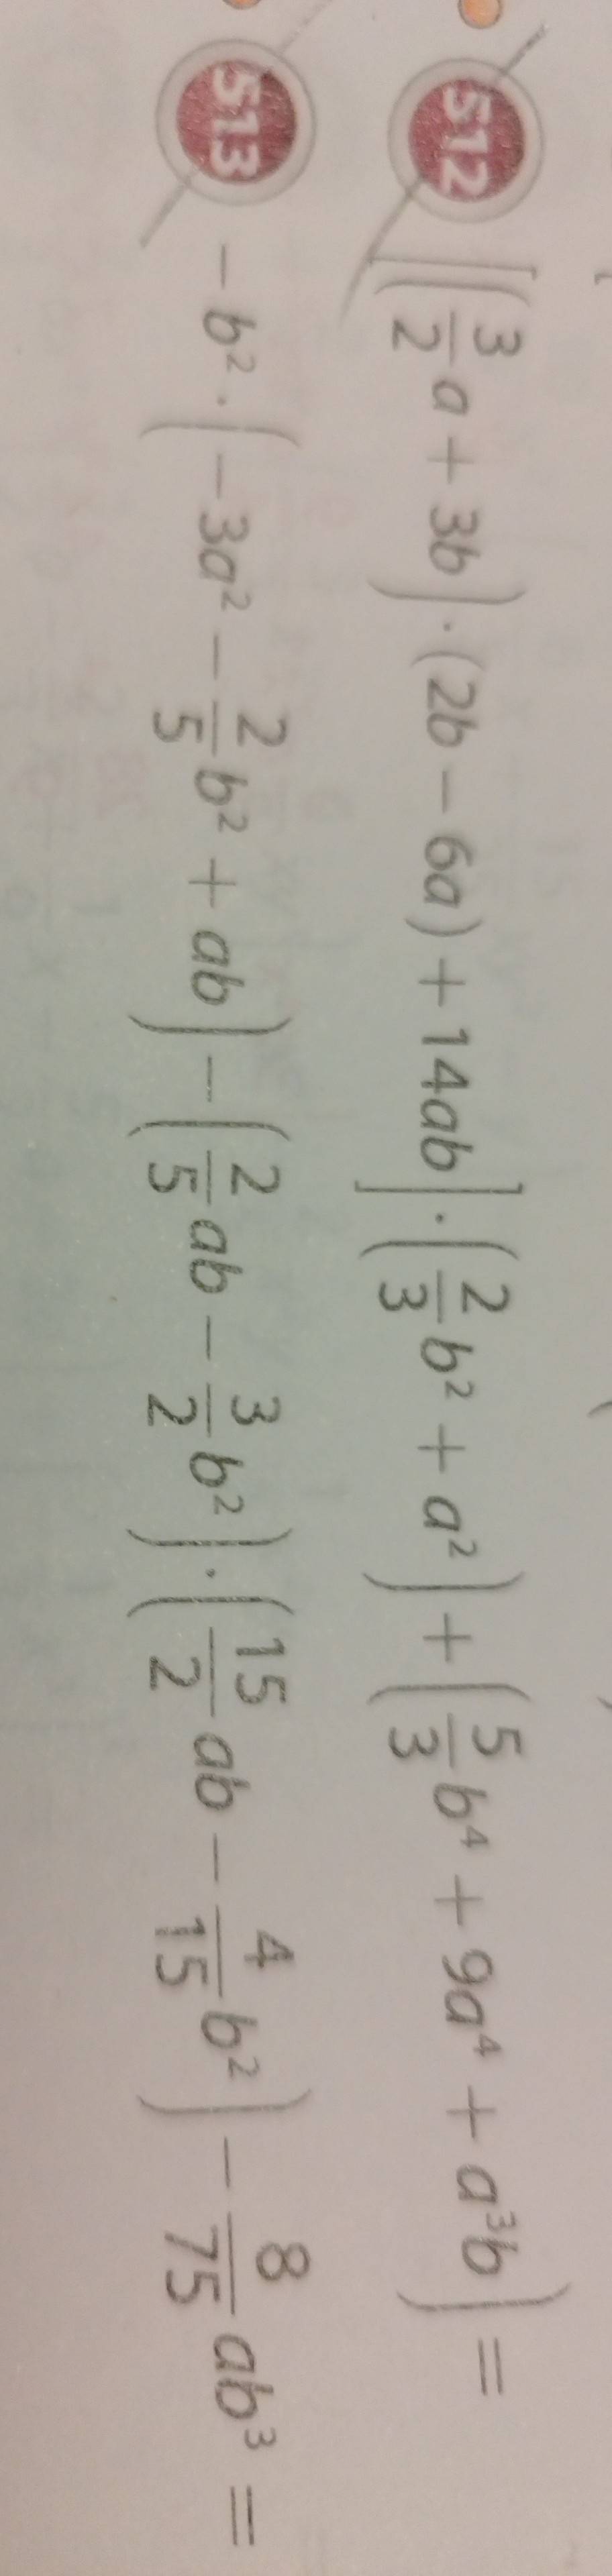 512 [(3/2 a + 3b) · (2b − 6a) + 14ab] · (2/3 b² + a²) + (5/3 b⁴ + 9a⁴ + a³b) =
513 −b² · (−3a² − 2/5 b² + ab) − (2/5 ab − 3/2 b²) · (15/2 ab − 4/15 b²) − 8/75 ab³ =